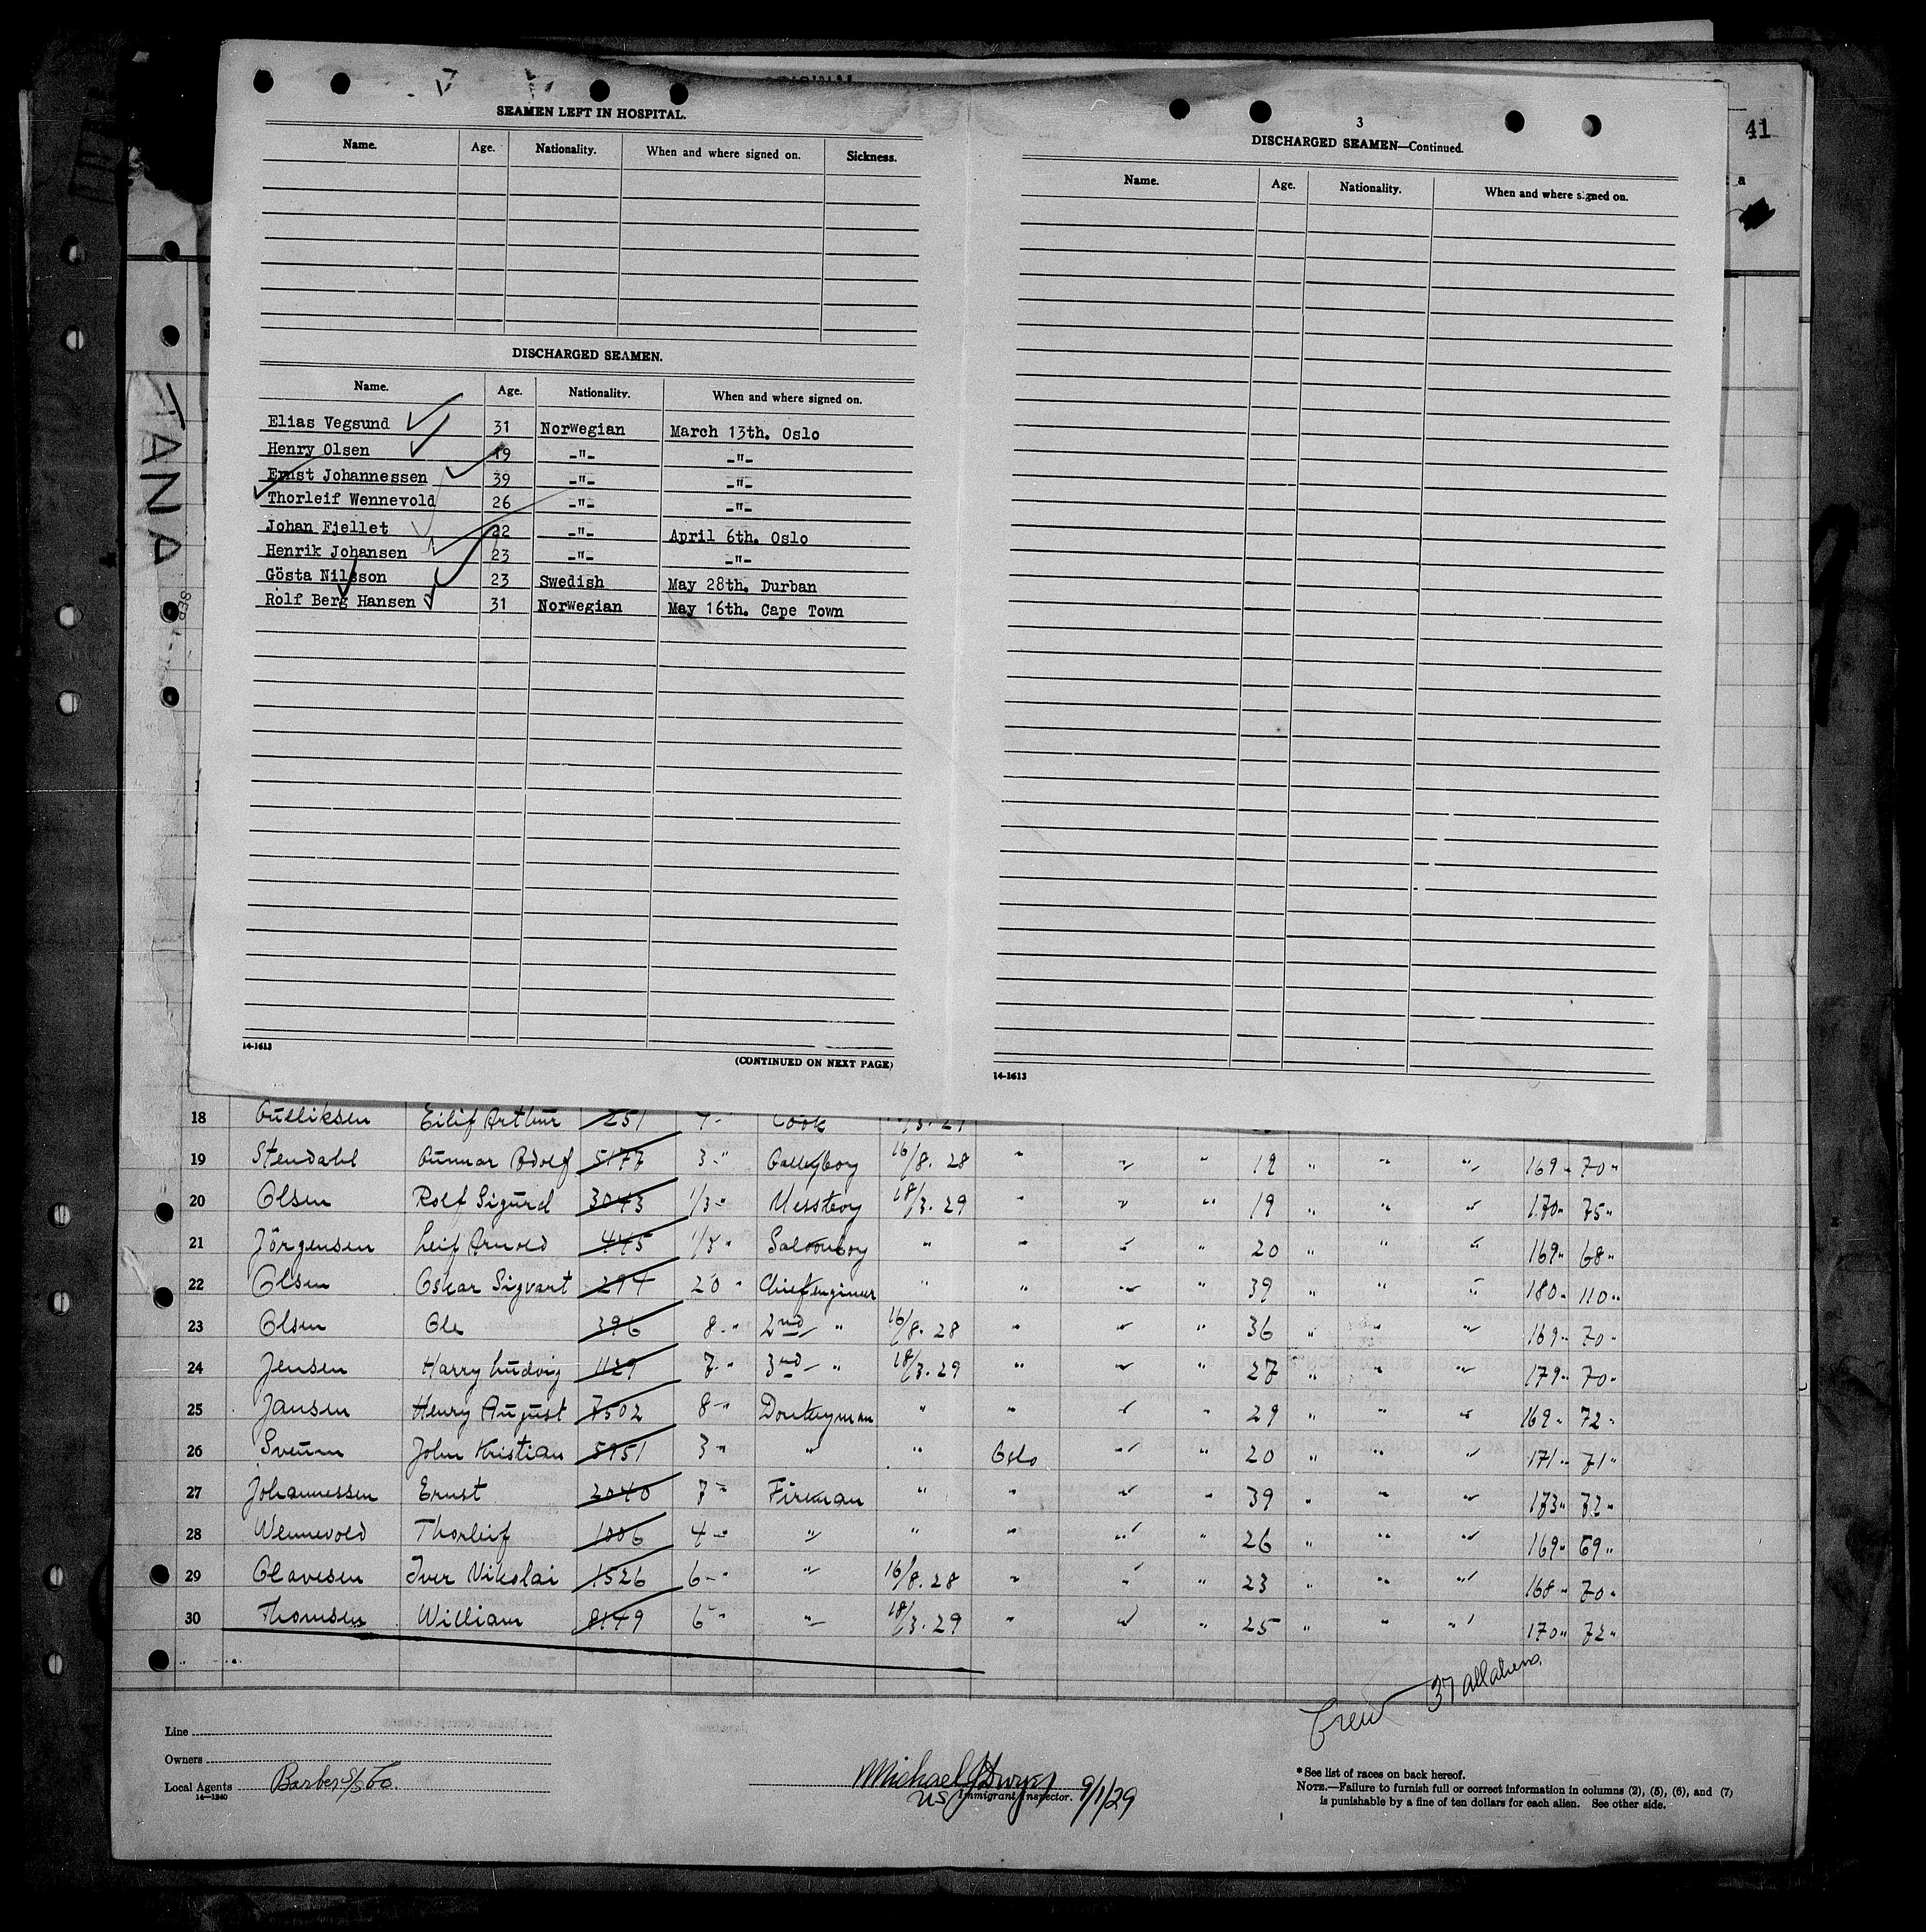 SEAMEN LEFT IN HOSPITAL.
Name. Age. Nationality. When and where signed on. Sickness.
DISCHARGED SEAMEN.
Name. Age. Nationality. When and where signed on.
Elias Vegsund 31 Norwegian March 13th. Oslo
Henry Olsen 19 -"- -"-
Ernst Johannessen 39 -"- -"-
Thorleif Wennevold 26 -"- -"-
Johan Fjellet 22 -"- April 6th. Oslo
Henrik Johansen 23 -"- -"-
Gösta Nilsson 23 Swedish May 28th. Durban
Rolf Berg Hansen 31 Norwegian May 16th. Cape Town
14-1613
(CONTINUED ON NEXT PAGE)
3
DISCHARGED SEAMEN—Continued.
Name. Age. Nationality. When and where signed on.
14-1613
41
a
TANA
18 Gulliksen Eilif Arthur 251 Cook
19 Stendahl Gunnar Adolf 5177 3-" Galleyboy 16/8. 28 " " " 19 " " " 169 " 70 "
20 Olsen Rolf Sigurd 3043 1/3 - Messboy 18/3. 29 " " " 19 " " " 170 " 75 "
21 Jörgensen Leif Arnold 445 1/3 " Saloonboy " " " " 20 " " " 169 " 68 "
22 Olsen Oskar Sigvart 294 20 " Chiefengineer " " " " 39 " " " 180 " 110 "
23 Olsen Ole 396 8-" 2nd " 16/8. 28 " " " 36 " " " 169 " 70 "
24 Jensen Harry Ludvig 1129 7-" 3rd " 18/3. 29 " " " 27 " " " 179 " 70 "
25 Jansen Henry August 7502 8-" Donkeyman " " " " 29 " " " 169 " 72 "
26 Sveum John Kristian 5951 3 " " " Oslo " " 20 " " " 171 " 71 "
27 Johannessen Ernst 2040 7 " Fireman " " " " 39 " " " 173 " 72 "
28 Wennevold Thorleif 1006 4-" " " " " " 26 " " " 169 " 69 "
29 Olavesen Iver Nikolai 1526 6-" " 16/8. 28 " " " 23 " " " 168 " 70 "
30 Thomsen William 8149 6 " " 18/3. 29 " " " 25 " " " 170 " 72 "
Crew 37 all aliens
Line
Owners
Local Agents Barber S/S Co.
14—1240
Michael J Dwyer
US Immigrant Inspector. 9/1/29
* See list of races on back hereof.
NOTE.—Failure to furnish full or correct information in columns (2), (5), (6), and (7)
is punishable by a fine of ten dollars for each alien. See other side.